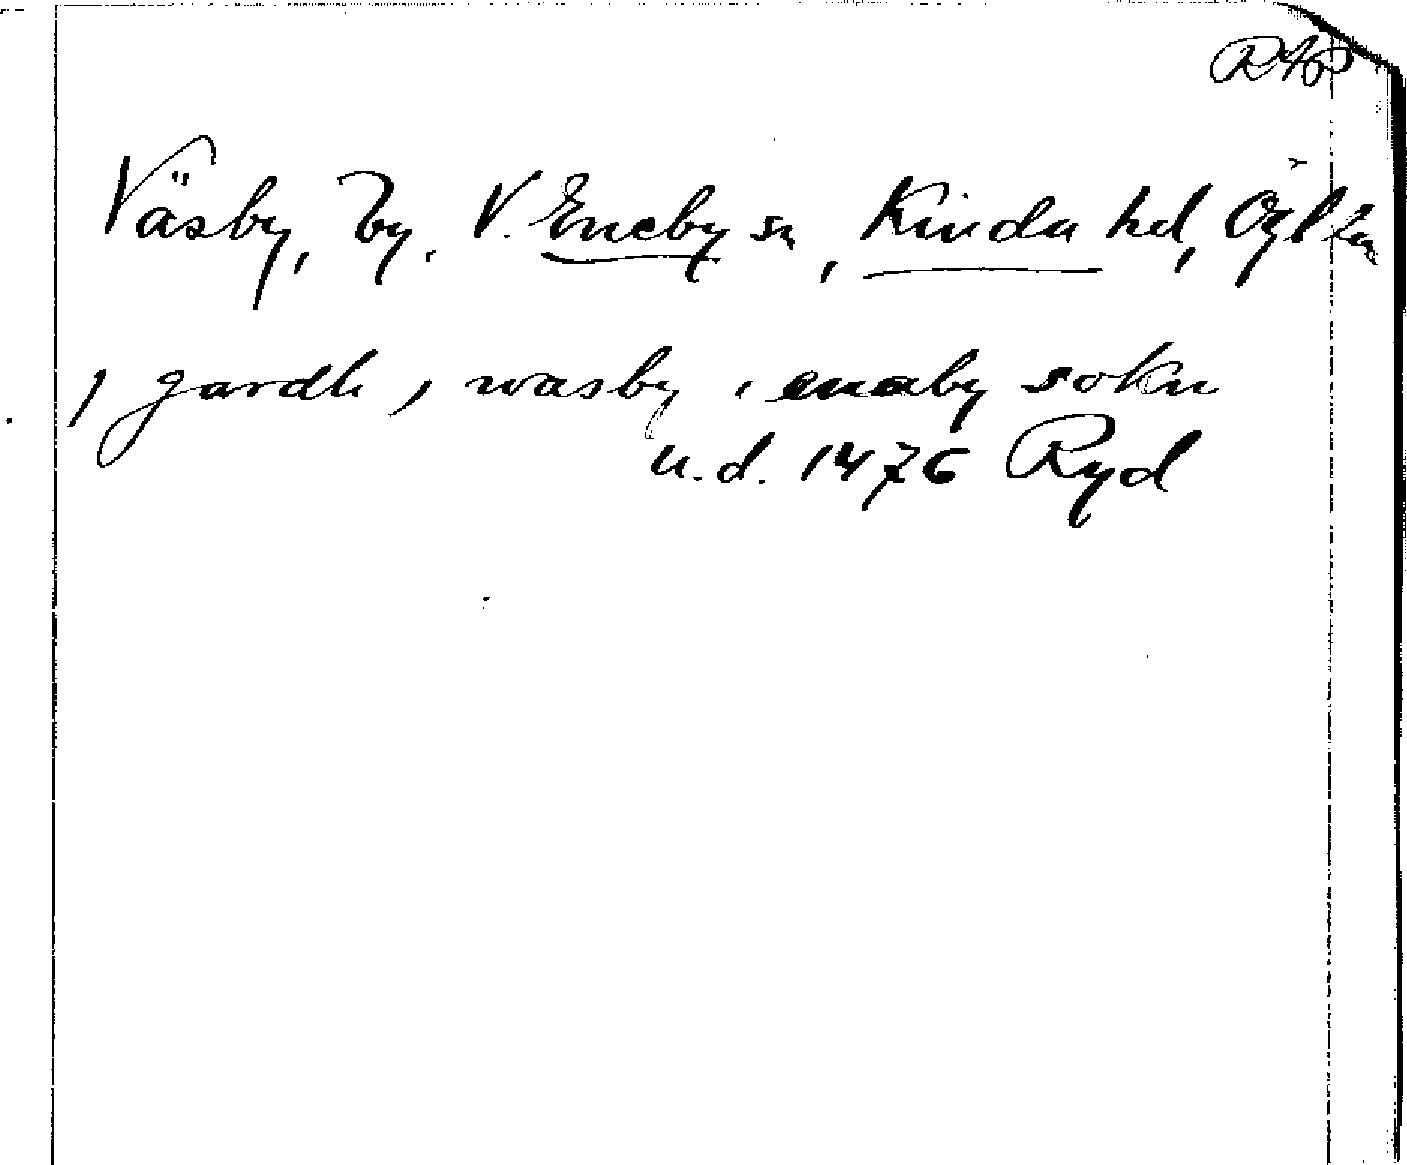 RAP
Väsby, by. V. Eneby sn, Kinda hd, Ögl län
j gardh j wasby i enaby sokn
u.d. 1476 Ryd